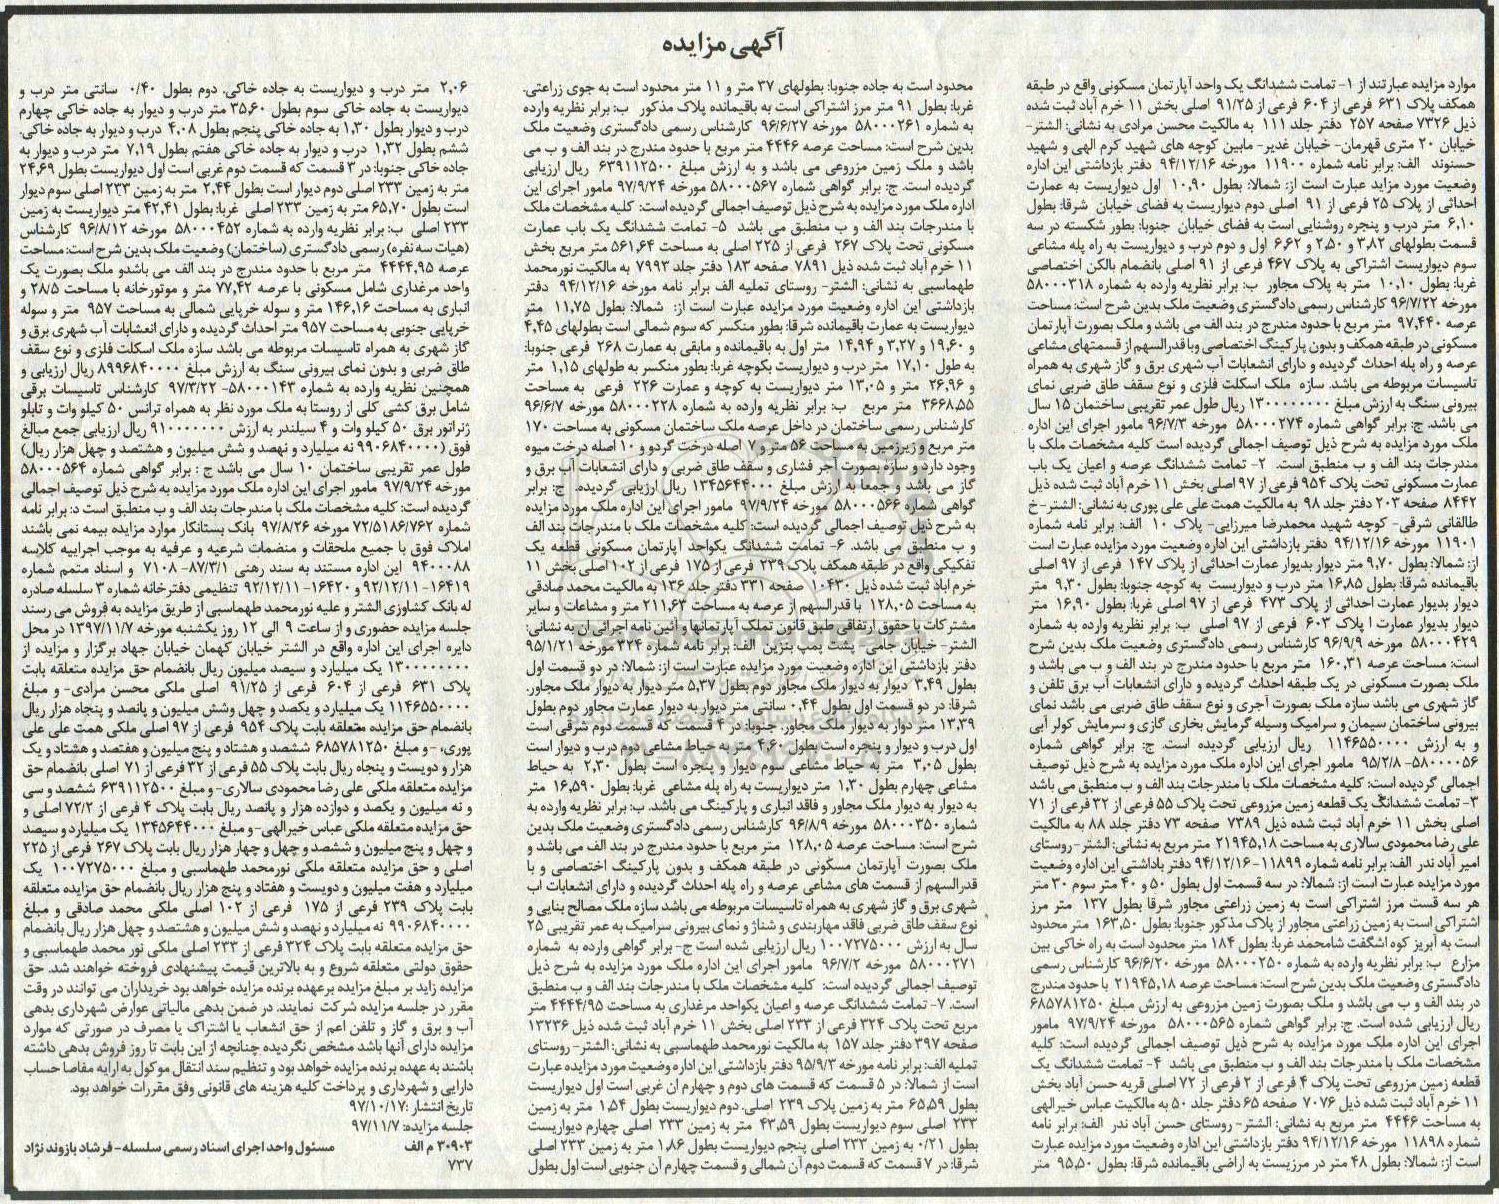 آگهی مزایده
موارد مزایده عبارتند از ۱- تمامت ششدانگ یک واحد آپارتمان مسکونی واقع در طبقه
همکف پلاک ۶۳۱ فرعی از ۶۰۴ فرعی از ۹۱/۲۵ اصلی بخش ۱۱ خرم آباد ثبت شده
ذیل ۷۳۲۶ صفحه ۲۵۷ دفتر جلد ۱۱۱ به مالکیت محسن مرادی به نشانی: الشتر-
خیابان ۲۰ متری قهرمان- خیابان غدیر- مابین کوچه های شهید کرم الهی و شهید
حسنوند الف: برابر نامه شماره ۱۱۹۰۰ مورخه ۹۴/۱۲/۱۶ دفتر بازداشتی این اداره
وضعیت مورد مزاید عبارت است از: شمالا: بطول ۱۰,۹۰ اول دیواریست به عمارت
احداثی از پلاک ۲۵ فرعی از ۹۱ اصلی دوم دیواریست به فضای خیابان شرقا: بطول
۶,۱۰ متر درب و پنجره روشنایی است به فضای خیابان جنوبا: بطور شکسته در سه
قسمت بطولهای ۳,۸۲ و ۲,۵۰ و ۶,۶۲ اول و دوم درب و دیواریست به راه پله مشاعی
سوم دیواریست اشتراکی به پلاک ۴۶۷ فرعی از ۹۱ اصلی بانضمام بالکن اختصاصی
غربا: بطول ۱۰,۱۰ متر به پلاک مجاور ب: برابر نظریه وارده به شماره ۵۸۰۰۰۳۱۸
مورخه ۹۶/۷/۲۲ کارشناس رسمی دادگستری وضعیت ملک بدین شرح است: مساحت
عرصه ۹۷,۴۴۰ متر مربع با حدود مندرج در بند الف می باشد و ملک بصورت آپارتمان
مسکونی در طبقه همکف و بدون پارکینگ اختصاصی وباقدرالسهم از قسمتهای مشاعی
عرصه و راه پله احداث گردیده و دارای انشعابات آب شهری برق و گاز شهری به همراه
تاسیسات مربوطه می باشد. سازه ملک اسکلت فلزی و نوع سقف طاق ضربی نمای
بیرونی سنگ به ارزش مبلغ ۱۳۰۰۰۰۰۰۰۰ ریال طول عمر تقریبی ساختمان ۱۵ سال
می باشد. ج: برابر گواهی شماره ۵۸۰۰۰۲۷۴ مورخه ۹۶/۷/۳ مامور اجرای این اداره
ملک مورد مزایده به شرح ذیل توصیف اجمالی گردیده است کلیه مشخصات ملک با
مندرجات بند الف و ب منطبق است. ۲- تمامت ششدانگ عرصه و اعیان یک باب
عمارت مسکونی تحت پلاک ۹۵۴ فرعی از ۹۷ اصلی بخش ۱۱ خرم آباد ثبت شده ذیل
۸۴۴۲ صفحه ۲۰۳ دفتر جلد ۹۸ به مالکیت همت علی علی پوری به نشانی: الشتر-خ
طالقانی شرقی- کوچه شهید محمدرضا میرزایی- پلاک ۱۰ الف: برابر نامه شماره
۱۱۹۰۱ مورخه ۹۴/۱۲/۱۶ دفتر بازداشتی این اداره وضعیت مورد مزایده عبارت است
از: شمالا: بطول ۹,۷۰ متر دیوار بدیوار عمارت احداثی از پلاک ۱۴۷ فرعی از ۹۷ اصلی
باقیمانده شرقا: بطول ۱۶,۸۵ متر درب و دیواریست به کوچه جنوبا: بطول ۹,۳۰ متر
دیوار بدیوار عمارت احداثی از پلاک ۴۷۳ فرعی از ۹۷ اصلی غربا: بطول ۱۶,۹۰ متر
دیوار بدیوار عمارت ا پلاک ۶۰۳ فرعی از ۹۷ اصلی ب: برابر نظریه وارده به شماره
۵۸۰۰۰۴۲۹ مورخه ۹۶/۹/۹ کارشناس رسمی دادگستری وضعیت ملک بدین شرح
است: مساحت عرصه ۱۶۰,۳۱ متر مربع با حدود مندرج در بند الف و ب می باشد و
ملک بصورت مسکونی در یک طبقه احداث گردیده و دارای انشعابات آب برق تلفن و
گاز شهری می باشد سازه ملک بصورت آجری و نوع سقف طاق ضربی می باشد نمای
بیرونی ساختمان سیمان و سرامیک وسیله گرمایش بخاری گازی و سرمایش کولر آبی
و به ارزش ۱۱۴۶۵۵۰۰۰۰ ریال ارزیابی گردیده است. ج: برابر گواهی شماره
۵۸۰۰۰۰۵۶- ۹۵/۲/۸ مامور اجرای این اداره ملک مورد مزایده به شرح ذیل توصیف
اجمالی گردیده است: کلیه مشخصات ملک با مندرجات بند الف و ب منطبق می باشد
۳- تمامت ششدانگ یک قطعه زمین مزروعی تحت پلاک ۵۵ فرعی از ۳۲ فرعی از ۷۱
اصلی بخش ۱۱ خرم آباد ثبت شده ذیل ۷۳۸۹ صفحه ۷۳ دفتر جلد ۸۸ به مالکیت
علی رضا محمودی سالاری به مساحت ۲۱۹۴۵,۱۸ متر مربع به نشانی: الشتر- روستای
امیر آباد ندر الف: برابر نامه شماره ۱۱۸۹۹-۹۴/۱۲/۱۶ دفتر باداشتی این اداره وضعیت
مورد مزایده عبارت است از: شمالا: در سه قسمت اول بطول ۵۰ و ۴۰ متر سوم ۳۰ متر
هر سه قست مرز اشتراکی است به زمین زراعتی مجاور شرقا بطول ۱۳۷ متر مرز
اشتراکی است به زمین زراعتی مجاور از پلاک مذکور جنوبا: بطول ۱۶۳,۵۰ متر محدود
است به آبریز کوه اشگفت شامحمد غربا: بطول ۱۸۴ متر محدود است به راه خاکی بین
مزارع ب: برابر نظریه وارده به شماره ۵۸۰۰۰۲۵۰ مورخه ۹۶/۶/۲۰ کارشناس رسمی
دادگستری وضعیت ملک بدین شرح است: مساحت عرصه ۲۱۹۴۵,۱۸ با حدود مندرج
در بند الف و ب می باشد و ملک بصورت زمین مزروعی به ارزش مبلغ ۶۸۵۷۸۱۲۵۰
ریال ارزیابی شده است. ج: برابر گواهی شماره ۵۸۰۰۰۵۶۵ مورخه ۹۷/۹/۲۴ مامور
اجرای این اداره ملک مورد مزایده به شرح ذیل توصیف اجمالی گردیده است: کلیه
مشخصات ملک با مندرجات بند الف و ب منطبق می باشد ۴- تمامت ششدانگ یک
قطعه زمین مزروعی تحت پلاک ۴ فرعی از ۲ فرعی از ۷۲ اصلی قریه حسن آباد بخش
۱۱ خرم آباد ثبت شده ذیل ۷۰۷۶ صفحه ۶۵ دفتر جلد ۵۰ به مالکیت عباس خیرالهی
به مساحت ۴۴۴۶ متر مربع به نشانی: الشتر- روستای حسن آباد ندر الف: برابر نامه
شماره ۱۱۸۹۸ مورخه ۹۴/۱۲/۱۶ دفتر بازداشتی این اداره وضعیت مورد مزایده عبارت
است از: شمالا: بطول ۴۸ متر در مرزیست به اراضی باقیمانده شرقا: بطول ۹۵,۵۰ متر
محدود است به جاده جنوبا: بطولهای ۳۷ متر و ۱۱ متر محدود است به جوی زراعتی.
غربا: بطول ۹۱ متر مرز اشتراکی است به باقیمانده پلاک مذکور ب: برابر نظریه وارده
به شماره ۵۸۰۰۰۲۶۱ مورخه ۹۶/۶/۲۷ کارشناس رسمی دادگستری وضعیت ملک
بدین شرح است: مساحت عرصه ۴۴۴۶ متر مربع با حدود مندرج در بند الف و ب می
باشد و ملک زمین مزروعی می باشد و به ارزش مبلغ ۶۳۹۱۱۲۵۰۰ ریال ارزیابی
گردیده است. ج: برابر گواهی شماره ۵۸۰۰۰۵۶۷ مورخه ۹۷/۹/۲۴ مامور اجرای این
اداره ملک مورد مزایده به شرح ذیل توصیف اجمالی گردیده است: کلیه مشخصات ملک
با مندرجات بند الف و ب منطبق می باشد ۵- تمامت ششدانگ یک باب عمارت
مسکونی تحت پلاک ۲۶۷ فرعی از ۲۲۵ اصلی به مساحت ۵۶۱,۶۴ متر مربع بخش
۱۱ خرم آباد ثبت شده ذیل ۷۸۹۱ صفحه ۱۸۳ دفتر جلد ۷۹۹۳ به مالکیت نورمحمد
طهماسبی به نشانی: الشتر- روستای تملیه الف برابر نامه مورخه ۹۴/۱۲/۱۶ دفتر
بازداشتی این اداره وضعیت مورد مزایده عبارت است از: شمالا: بطول ۱۱,۷۵ متر
دیواریست به عمارت باقیمانده شرقا: بطور منکسر که سوم شمالی است بطولهای ۴,۴۵
و ۱۹,۶۰ و ۳,۲۷ و ۱۴,۹۴ متر اول به باقیمانده و مابقی به عمارت ۲۶۸ فرعی جنوبا:
به طول ۱۷,۱۰ متر درب و دیواریست بکوچه غربا: بطور منکسر به طولهای ۱,۱۵ متر
و ۲۶,۹۶ متر و ۱۳,۰۵ متر دیواریست به کوچه و عمارت ۲۲۶ فرعی به مساحت
۳۶۶۸,۵۵ متر مربع ب: برابر نظریه وارده به شماره ۵۸۰۰۰۲۲۸ مورخه ۹۶/۶/۷
کارشناس رسمی ساختمان در داخل عرصه ملک ساختمان مسکونی به مساحت ۱۷۰
متر مربع و زیرزمین به مساحت ۵۶ متر و ۷ اصله درخت گردو و ۱۰ اصله درخت میوه
وجود دارد و سازه بصورت آجر فشاری و سقف طاق ضربی و دارای انشعابات آب برق و
گاز می باشد و جمعا به ارزش مبلغ ۱۳۴۵۶۴۴۰۰۰ ریال ارزیابی گردیده. ج: برابر
گواهی شماره ۵۸۰۰۰۵۶۶ مورخه ۹۷/۹/۲۴ مامور اجرای این اداره ملک مورد مزایده
به شرح ذیل توصیف اجمالی گردیده است: کلیه مشخصات ملک با مندرجات بند الف
و ب منطبق می باشد. ۶- تمامت ششدانگ یکواحد آپارتمان مسکونی قطعه یک
تفکیکی واقع در طبقه همکف پلاک ۲۳۹ فرعی از ۱۷۵ فرعی از ۱۰۲ اصلی بخش ۱۱
خرم آباد ثبت شده ذیل ۱۰۴۳۰ صفحه ۳۳۱ دفتر جلد ۱۳۶ به مالکیت محمد صادقی
به مساحت ۱۲۸,۰۵ با قدرالسهم از عرصه به مساحت ۲۱۱,۶۳ متر و مشاعات و سایر
مشترکات با حقوق ارتفاقی طبق قانون تملک آپارتمانها و آئین نامه اجرائی آن به نشانی:
الشتر- خیابان جامی- پشت پمپ بنزین الف: برابر نامه شماره ۳۲۴ مورخه ۹۵/۱/۲۱
دفتر بازداشتی این اداره وضعیت مورد مزایده عبارت است از: شمالا: در دو قسمت اول
بطول ۳,۴۹ دیوار به دیوار ملک مجاور دوم بطول ۵,۳۷ متر دیوار به دیوار ملک مجاور.
شرقا: در دو قسمت اول بطول ۰,۴۴ سانتی متر دیوار به دیوار عمارت مجاور دوم بطول
۱۳,۳۹ متر دوار به دیوار ملک مجاور. جنوبا: در ۴ قسمت که قسمت دوم شرقی است
اول درب و دیوار و پنجره است بطول ۴,۶۰ متر به حیاط مشاعی دوم درب و دیوار است
بطول ۳,۰۵ متر به حیاط مشاعی سوم دیوار و پنجره است بطول ۲,۳۰ به حیاط
مشاعی چهارم بطول ۱,۳۰ متر دیواریست به راه پله مشاعی غربا: بطول ۱۶,۵۹۰ متر
به دیوار به دیوار ملک مجاور و فاقد انباری و پارکینگ می باشد. ب: برابر نظریه وارده به
شماره ۵۸۰۰۰۳۵۰ مورخه ۹۶/۸/۹ کارشناس رسمی دادگستری وضعیت ملک بدین
شرح است: مساحت عرصه ۱۲۸,۰۵ متر مربع با حدود مندرج در بند الف می باشد و
ملک بصورت آپارتمان مسکونی در طبقه همکف و بدون پارکینگ اختصاصی و با
قدرالسهم از قسمت های مشاعی عرصه و راه پله احداث گردیده و دارای انشعابات اب
شهری برق و گاز شهری به همراه تاسیسات مربوطه می باشد سازه ملک مصالح بنایی و
نوع سقف طاق ضربی فاقد مهاربندی و شناژ و نمای بیرونی سرامیک به عمر تقریبی ۲۵
سال به ارزش ۱۰۰۷۲۷۵۰۰۰ ریال ارزیابی شده است ج- برابر گواهی وارده به شماره
۵۸۰۰۰۲۷۱ مورخه ۹۶/۷/۲ مامور اجرای این اداره ملک مورد مزایده به شرح ذیل
توصیف اجمالی گردیده است: کلیه مشخصات ملک با مندرجات بند الف و ب منطبق
است. ۷- تمامت ششدانگ عرصه و اعیان یکواحد مرغداری به مساحت ۴۴۴۴/۹۵ متر
مربع تحت پلاک ۳۲۴ فرعی از ۲۳۳ اصلی بخش ۱۱ خرم آباد ثبت شده ذیل ۱۳۲۳۶
صفحه ۳۹۷ دفتر جلد ۱۵۷ به مالکیت نورمحمد طهماسبی به نشانی: الشتر- روستای
تملیه الف: برابر نامه مورخه ۹۵/۹/۳ دفتر بازداشتی این اداره وضعیت مورد مزایده عبارت
است از شمالا: در ۵ قسمت که قسمت های دوم و چهارم ان غربی است اول دیواریست
بطول ۶۵,۵۹ متر به زمین پلاک ۲۳۹ اصلی. دوم دیواریست بطول ۱,۵۴ متر به زمین
۲۳۳ اصلی سوم دیواریست بطول ۴۳,۵۹ متر به زمین ۲۳۳ اصلی چهارم دیواریست
بطول ۰/۲۱ به زمین ۲۳۳ اصلی پنجم دیواریست بطول ۱,۸۶ متر به زمین ۲۳۳ اصلی
شرقا: در ۷ قسمت که قسمت دوم آن شمالی و قسمت چهارم آن جنوبی است اول بطول
۲,۰۶ متر درب و دیواریست به جاده خاکی. دوم بطول ۰/۴۰ سانتی متر درب و
دیواریست به جاده خاکی سوم بطول ۳۵,۶۰ متر درب و دیوار به جاده خاکی چهارم
درب و دیوار بطول ۱,۳۰ به جاده خاکی پنجم بطول ۴,۰۸ درب و دیوار به جاده خاکی.
ششم بطول ۱,۳۲ درب و دیوار به جاده خاکی هفتم بطول ۷,۱۹ متر درب و دیوار به
جاده خاکی جنوبا: در ۳ قسمت که قسمت دوم غربی است اول دیواریست بطول ۲۴,۶۹
متر به زمین ۲۳۳ اصلی دوم دیوار است بطول ۲,۴۴ متر به زمین ۲۳۳ اصلی سوم دیوار
است بطول ۶۵,۷۰ متر به زمین ۲۳۳ اصلی غربا: بطول ۴۲,۴۱ متر دیواریست به زمین
۲۳۳ اصلی ب: برابر نظریه وارده به شماره ۵۸۰۰۰۴۵۲ مورخه ۹۶/۸/۱۲ کارشناس
(هیات سه نفره) رسمی دادگستری (ساختمان) وضعیت ملک بدین شرح است: مساحت
عرصه ۴۴۴۴,۹۵ متر مربع با حدود مندرج در بند الف می باشدو ملک بصورت یک
واحد مرغداری شامل مسکونی با عرصه ۷۷,۴۲ متر و موتورخانه با مساحت ۲۸/۵ و
انباری به مساحت ۱۴۶,۱۶ متر و سوله خرپایی شمالی به مساحت ۹۵۷ متر و سوله
خرپایی جنوبی به مساحت ۹۵۷ متر احداث گردیده و دارای انعشابات آب شهری برق و
گاز شهری به همراه تاسیسات مربوطه می باشد سازه ملک اسکلت فلزی و نوع سقف
طاق ضربی و بدون نمای بیرونی سنگ به ارزش مبلغ ۸۹۹۶۸۴۰۰۰۰ ریال ارزیابی و
همچنین نظریه وارده به شماره ۵۸۰۰۰۱۴۳- ۹۷/۳/۲۲ کارشناس تاسیسات برقی
شامل برق کشی کلی از روستا به ملک مورد نظر به همراه ترانس ۵۰ کیلو وات و تابلو
ژنراتور برق ۵۰ کیلو وات و ۴ سیلندر به ارزش ۹۱۰۰۰۰۰۰۰ ریال ارزیابی جمع مبالغ
فوق (۹۹۰۶۸۴۰۰۰۰ نه میلیارد و نهصد و شش میلیون و هشتصد و چهل هزار ریال)
طول عمر تقریبی ساختمان ۱۰ سال می باشد ج : برابر گواهی شماره ۵۸۰۰۰۵۶۴
مورخه ۹۷/۹/۲۴ مامور اجرای این اداره ملک مورد مزایده به شرح ذیل توصیف اجمالی
گردیده است: کلیه مشخصات ملک با مندرجات بند الف و ب منطبق است د: برابر نامه
شماره ۷۲/۵۱۸۶/۷۶۲ مورخه ۹۷/۸/۲۶ بانک بستانکار موارد مزایده بیمه نمی باشند
املاک فوق با جمیع ملحقات و منضمات شرعیه و عرفیه به موجب اجراییه کلاسه
۹۴۰۰۰۸۸ این اداره مستند به سند رهنی ۸۷/۳/۱- ۷۱۰۸ و اسناد متمم شماره
۱۶۴۱۹- ۹۲/۱۲/۱۱ و ۱۶۴۲۰- ۹۲/۱۲/۱۱ تنظیمی دفترخانه شماره ۳ سلسله صادره
له بانک کشاورزی الشتر و علیه نورمحمد طهماسبی از طریق مزایده به فروش می رسند
جلسه مزایده حضوری و از ساعت ۹ الی ۱۲ روز یکشنبه مورخه ۱۳۹۷/۱۱/۷ در محل
دایره اجرای این اداره واقع در الشتر خیابان کهمان خیابان جهاد برگزار و مزایده از
۱۳۰۰۰۰۰۰۰۰ یک میلیارد و سیصد میلیون ریال بانضمام حق مزایده متعلقه بابت
پلاک ۶۳۱ فرعی از ۶۰۴ فرعی از ۹۱/۲۵ اصلی ملکی محسن مرادی- و مبلغ
۱۱۴۶۵۵۰۰۰۰ یک میلیارد و یکصد و چهل وشش میلیون و پانصد و پنجاه هزار ریال
بانضمام حق مزایده متعلقه بابت پلاک ۹۵۴ فرعی از ۹۷ اصلی ملکی همت علی علی
پوری، -و مبلغ ۶۸۵۷۸۱۲۵۰ ششصد و هشتاد و پنج میلیون و هفتصد و هشتاد و یک
هزار و دویست و پنجاه ریال بابت پلاک ۵۵ فرعی از ۳۲ فرعی از ۷۱ اصلی بانضمام حق
مزایده متعلقه ملکی علی رضا محمودی سالاری- و مبلغ ۶۳۹۱۱۲۵۰۰ ششصد و سی
و نه میلیون و یکصد و دوازده هزار و پانصد ریال بابت پلاک ۴ فرعی از ۷۲/۲ اصلی و
حق مزایده متعلقه ملکی عباس خیرالهی-و مبلغ ۱۳۴۵۶۴۴۰۰۰ یک میلیارد و سیصد
و چهل و پنج میلیون و ششصد و چهل و چهار هزار ریال بابت پلاک ۲۶۷ فرعی از ۲۲۵
اصلی و حق مزایده متعلقه ملکی نورمحمد طهماسبی و مبلغ ۱۰۰۷۲۷۵۰۰۰ یک
میلیارد و هفت میلیون و دویست و هفتاد و پنج هزار ریال بانضمام حق مزایده متعلقه
بابت پلاک ۲۳۹ فرعی از ۱۷۵ فرعی از ۱۰۲ اصلی ملکی محمد صادقی و مبلغ
۹۹۰۶۸۴۰۰۰۰ نه میلیارد و نهصد و شش میلیون و هشتصد و چهل هزار ریال بانضمام
حق مزایده متعلقه بابت پلاک ۳۲۴ فرعی از ۲۳۳ اصلی ملکی نور محمد طهماسبی و
حقوق دولتی متعلقه شروع و به بالاترین قیمت پیشنهادی فروخته خواهند شد. حق
مزایده زاید بر مبلغ مزایده برعهده برنده مزایده خواهد بود خریداران می توانند در وقت
مقرر در جلسه مزایده شرکت نمایند. در ضمن بدهی مالیاتی عوارض شهرداری بدهی
آب و برق و گاز و تلفن اعم از حق انشعاب یا اشتراک یا مصرف در صورتی که موارد
مزایده دارای آنها باشد مشخص نگردیده چنانچه از این بابت تا روز فروش بدهی داشته
باشند به عهده برنده مزایده خواهد بود و تنظیم سند انتقال موکول به ارایه مفاصا حساب
دارایی و شهرداری و پرداخت کلیه هزینه های قانونی وفق مقررات خواهد بود.
تاریخ انتشار :۹۷/۱۰/۱۷
جلسه مزایده: ۹۷/۱۱/۷
۳۰۹۰۳ م الف مسئول واحد اجرای اسناد رسمی سلسله- فرشاد بازوند نژاد
۷۳۷